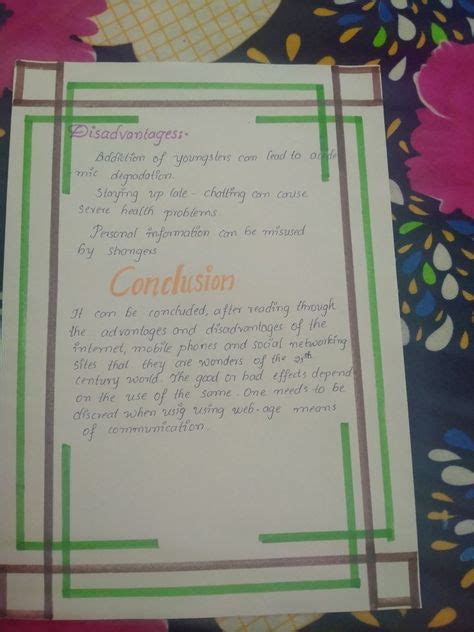 Disadvantages:-
Addiction of youngsters can lead to acade
mic degradation.
Staying up late - chatting can cause
severe health problems
Personal information can be misused
by strangers
Conclusion
It can be concluded, after reading through
the advantages and disadvantages of the
internet, mobile phones and social networking
sites that they are wonders of the 21th
century world. The good or bad effects depend
on the use of the same. One needs to be
discreat when usig using web-age means
of communication.